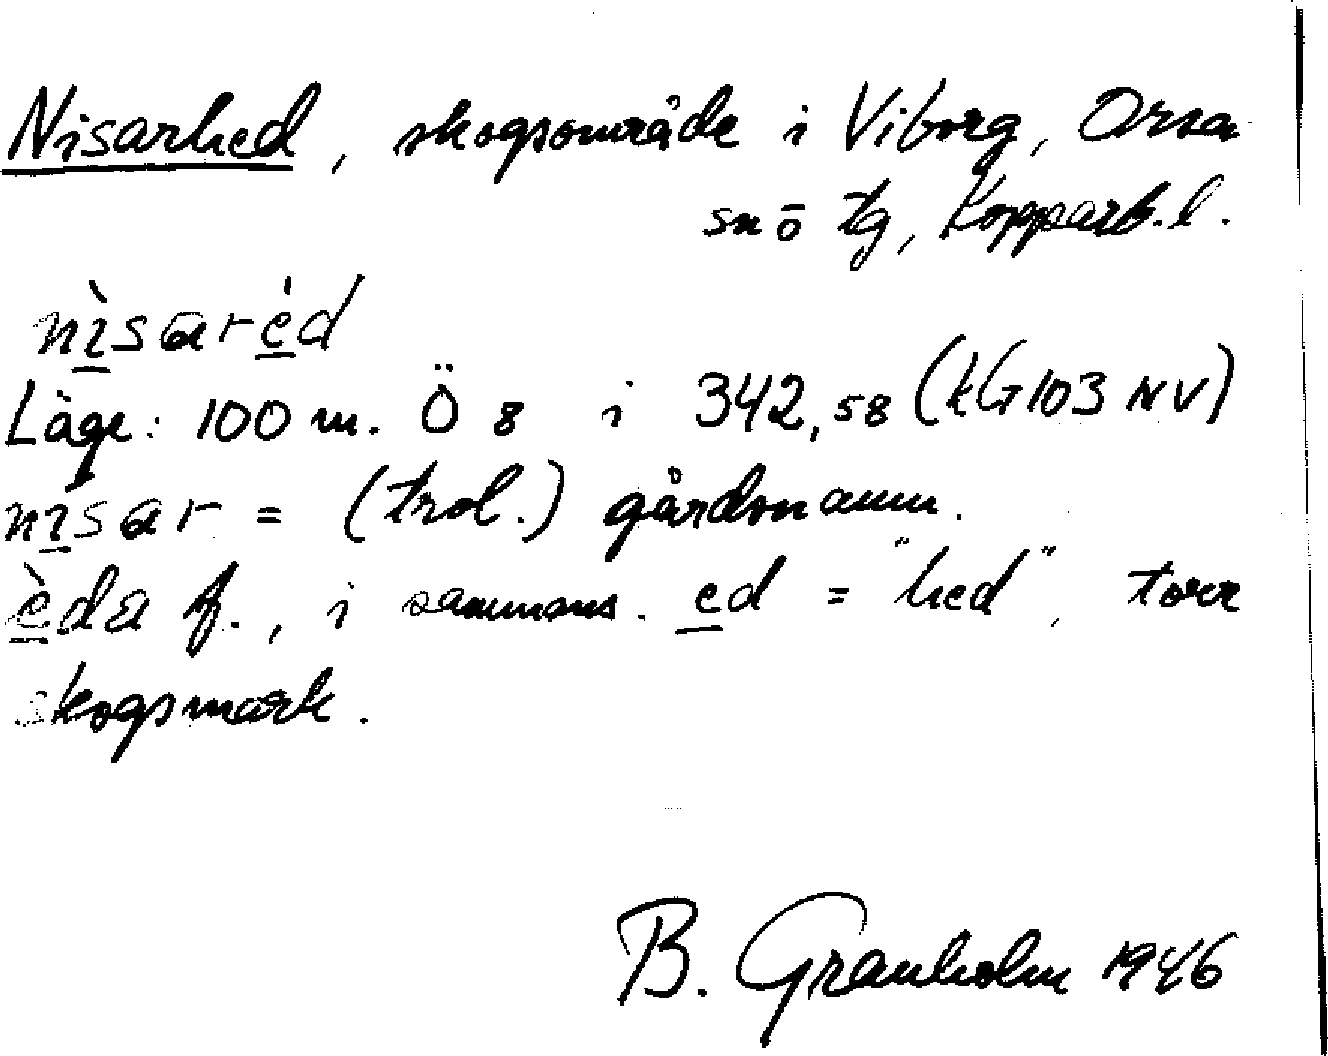 Nisarhed, skogsområde i Viborg, Orsa
sn o tg, Kopparb. l.
nìsaréd
Läge: 100 m. Ö 8 i 342,58 (kG 103 NV)
nìsar = (trol.) gårdsnamn.
èda f., i sammans. ed = "hed", torr
skogsmark.
B. Granholm 1946